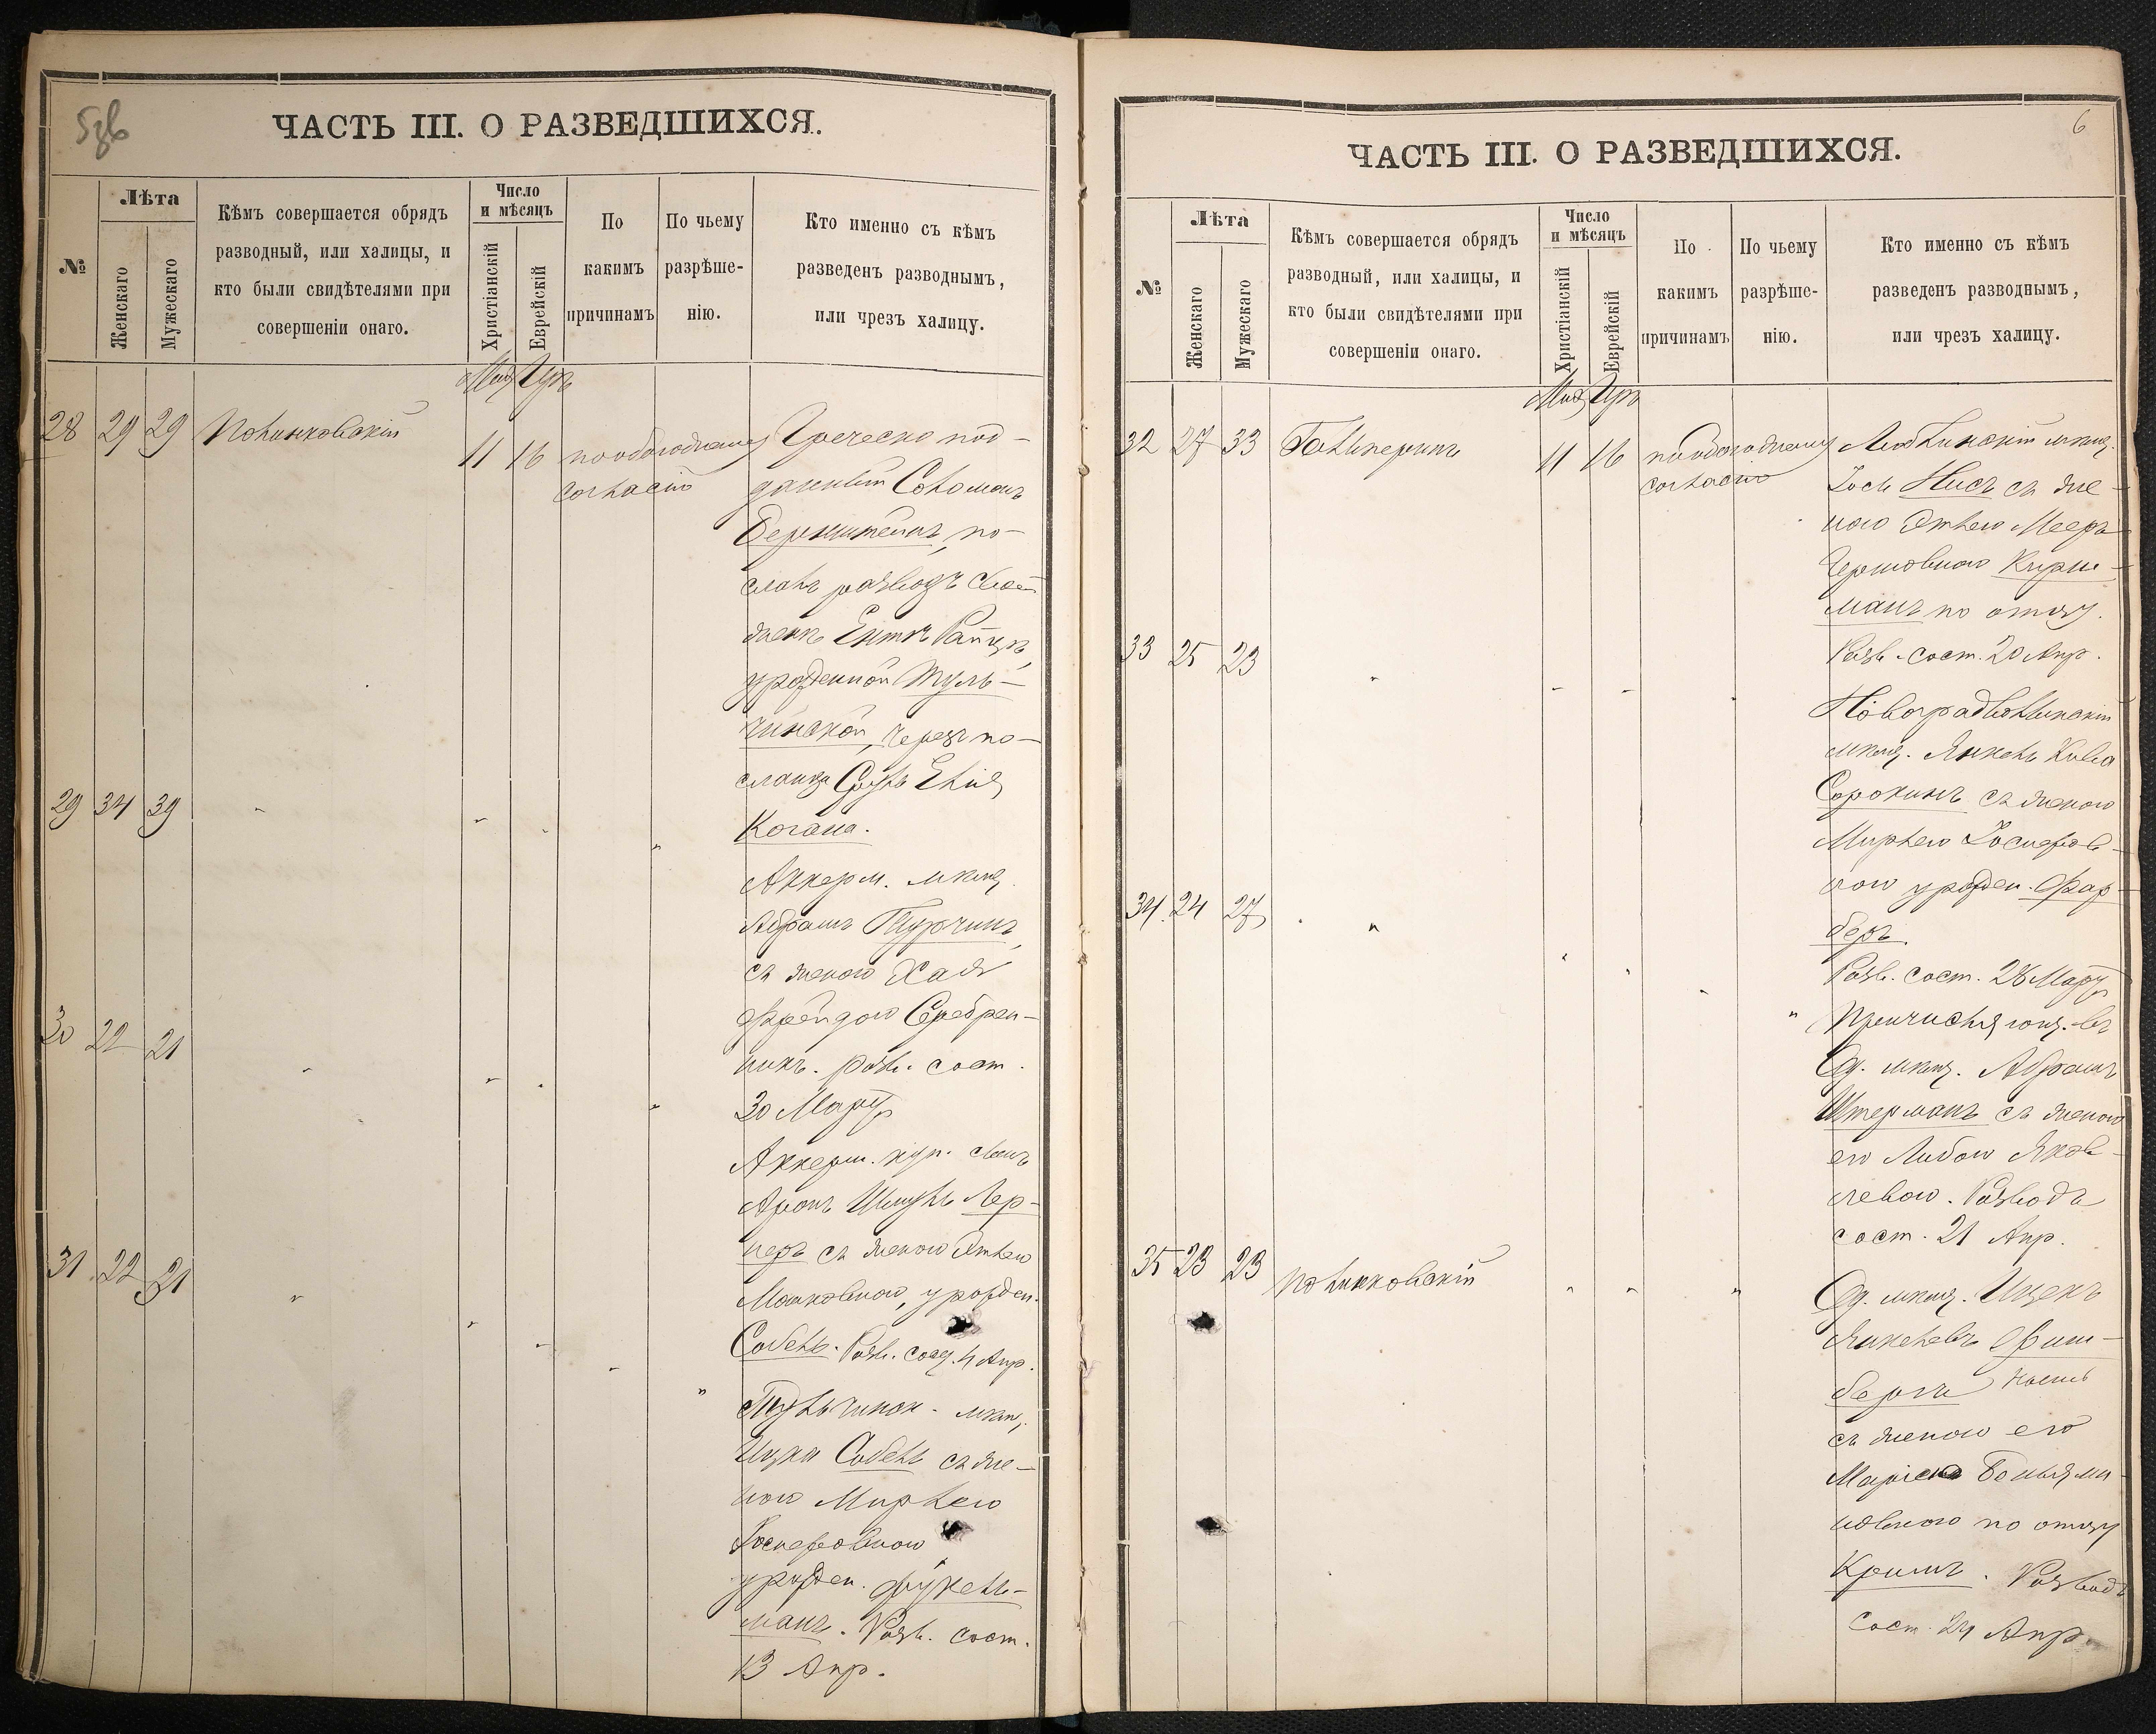 ЧАСТЬ III. О РАЗВЕДШИХСЯ.
№
Лѣта
Женскаго
Мужескаго
Кѣмъ совершается обрядъ
разводный, или халицы, и
кто были свидѣтелями при
совершеніи онаго.
Число
и мѣсяцъ
Христіанскій
Еврейскій
По
какимъ
причинамъ
По чьему
разрѣше-
нію.
Кто именно съ кѣмъ
разведенъ разводнымъ,
или чрезъ халицу.
28 29 29 Полинковскій 11 16 по обоюдному
согласію
Греческо под-
данный Соломонъ
Бернштейнъ, по-
слалъ разводъ своей
женѣ
урожденной Туль-
чинской, черезъ по-
сланца Сруль Эліа
Когана.
29 34 39 " " " "
Аккерм. мѣщ.
Абрамъ Турчинъ,
съ женою Хая
Фрейдою Серебрен-
никъ. разв. сост.
30 Марта
30 22 21 " " " "
Аккерм. куп. сынъ
Аронъ Шмуль Лер-
неръ съ женою Этлею
Мошковною, урожден.
Собель. Разв. сост. 4 Апр.
31 22 21 " " " " "
Тульчинск. мѣщ.
Ицко Собель съ же-
ною Мирлею
Іосифовною
урожден. Фукель-
манъ. Разв. сост.
13 Апр.
6
ЧАСТЬ III. О РАЗВЕДШИХСЯ.
№
Лѣта
Женскаго
Мужескаго
Кѣмъ совершается обрядъ
разводный, или халицы, и
кто были свидѣтелями при
совершеніи онаго.
Число
и мѣсяцъ
Христіанскій
Еврейскій
По
какимъ
причинамъ
По чьему
разрѣше-
нію.
Кто именно съ кѣмъ
разведенъ разводнымъ,
или чрезъ халицу.
32 27 33 Гальперинъ 11 16 по обоюдному
согласію
мѣщ.
Іось Нисъ съ же-
ною Этлею Мееръ
Гершовною Кирш-
манъ по отцу.
Разв. сост. 20 Апр.
33 25 23 " " " "
Новоградволынскій
мѣщ. Янкель Кива
Сорокинъ съ женою
Мирлею Іосифов-
ною урожден. Фар-
беръ.
Разв. сост. 28 Марта
34. 24 27 " " " " "
Причисляющ. въ
Од. мѣщ. Абрамъ
Штерманъ съ женою
его Либою Яков-
левою. Разводъ
сост. 21 Апр.
35 23 23 Полинковскій " " "
Од. мѣщ. Ицекъ
Янкелевъ Фиш-
бергъ
съ женою его
Маріею Беньями-
новною по отцу
Кримъ. Разводъ
сост. 24 Апр.